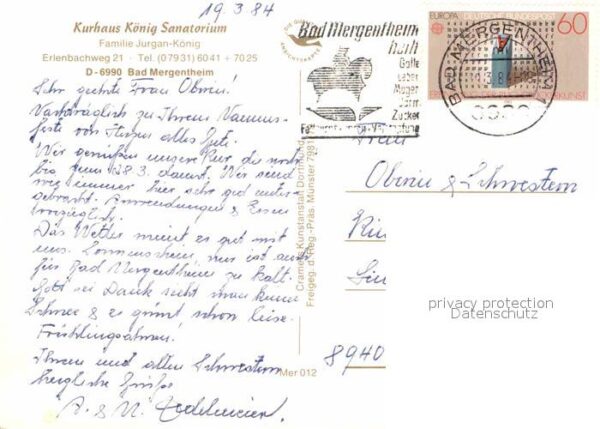 19.3.84
Kurhaus König Sanatorium
Familie Jurgan-König
Erlenbachweg 21 · Tel. (07931) 6041 + 7025
D-6990 Bad Mergentheim
Sehr geehrte Frau Oberin!
Nachträglich zu Ihrem Namens-
feste von Herzen alles Gute.
Wir genießen unsere Kur die noch
bis zum 28.3. dauert. Wir sind
wie immer hier sehr gut unter-
gebracht. Anwendungen & Essen
vorzüglich.
Das Wetter meint es gut mit
uns. Sonnenschein, nur ist auch
für Bad Mergentheim zu kalt.
Gott sei Dank sieht man keinen
Schnee & es grünt schon leise.
Frühlingsahnen!
Ihnen und allen Schwestern
herzliche Grüße
A. &
Cramers Kunstanstalt Dortmund
Freigeg. d. Reg.-Präs. Münster 7981
Mer 012
DIE GUTE
ANSICHTSKARTE
Bad Mergentheim
heilt
Galle
Leber
Magen
Darm
Zucker
EUROPA DEUTSCHE BUNDESPOST
60
BAD MERGENTHEIM 1
6990
Frau
Oberin & Schwestern
8940
privacy protection
Datenschutz